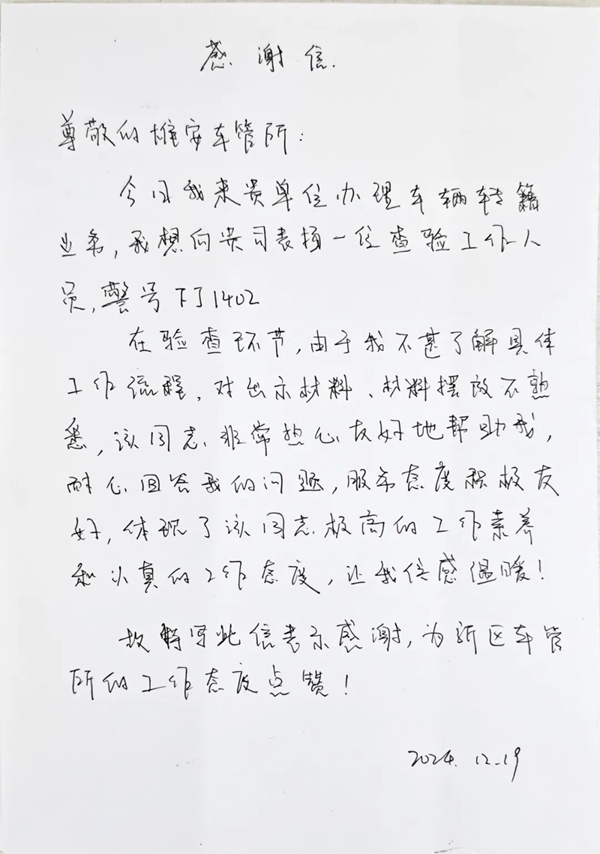 感谢信.
尊敬的雄安车管所:
今日我来贵单位办理车辆转籍
业务,我想向贵司表扬一位查验工作人
员,警号 1402
在验查环节,由于我不甚了解具体
工作流程,对出示材料、材料摆放不熟
悉,该同志非常热心友好地帮助我,
耐心回答我的问题,服务态度积极友
好,体现了该同志极高的工作素养
和认真的工作态度,让我倍感温暖!
故特写此信表示感谢,为新区车管
所的工作态度点赞!
2024.12.19